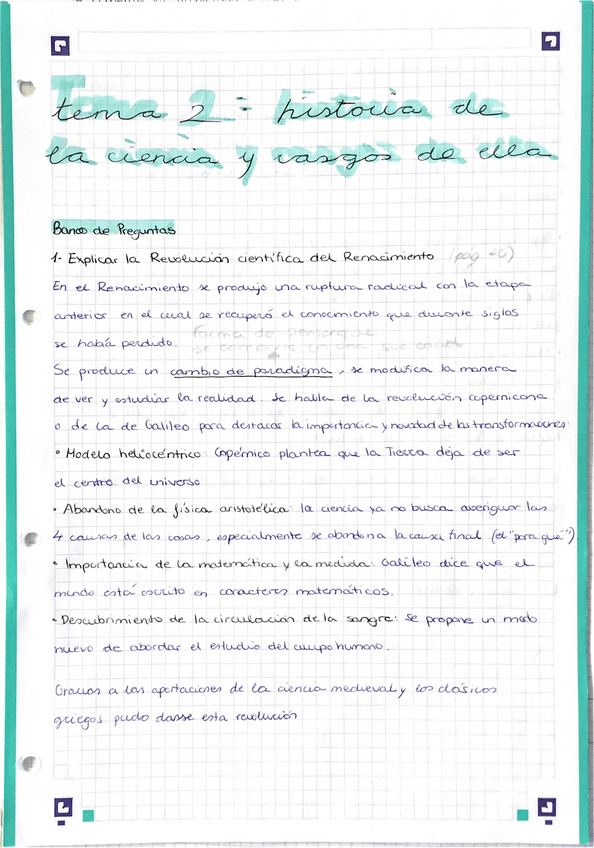 tema 2: historia de
la ciencia y rasgos de ella
Banco de Preguntas
1- Explicar la Revolución científica del Renacimiento (pág
En el Renacimiento se produjo una ruptura radical con la etapa
anterior en el cual se recuperó el conocimiento que durante siglos
se había perdido.
forma de
Se produce un cambio de paradigma, se modifica la manera
de ver y estudiar la realidad. Se habla de la revolución copernicana
o de la de Galileo para destacar la importancia y novedad de las transformaciones:
• Modelo heliocéntrico: Copérnico plantea que la Tierra deja de ser
el centro del universo
• Abandono de la física aristotélica: la ciencia ya no busca averiguar las
4 causas de las cosas, especialmente se abandona la causa final (el "para qué").
• Importancia de la matemática y la medida: Galileo dice que el
mundo está escrito en caracteres matemáticos.
• Descubrimiento de la circulación de la sangre: se propone un modo
nuevo de abordar el estudio del cuerpo humano.
Gracias a las aportaciones de la ciencia medieval y los clásicos
griegos pudo darse esta revolución